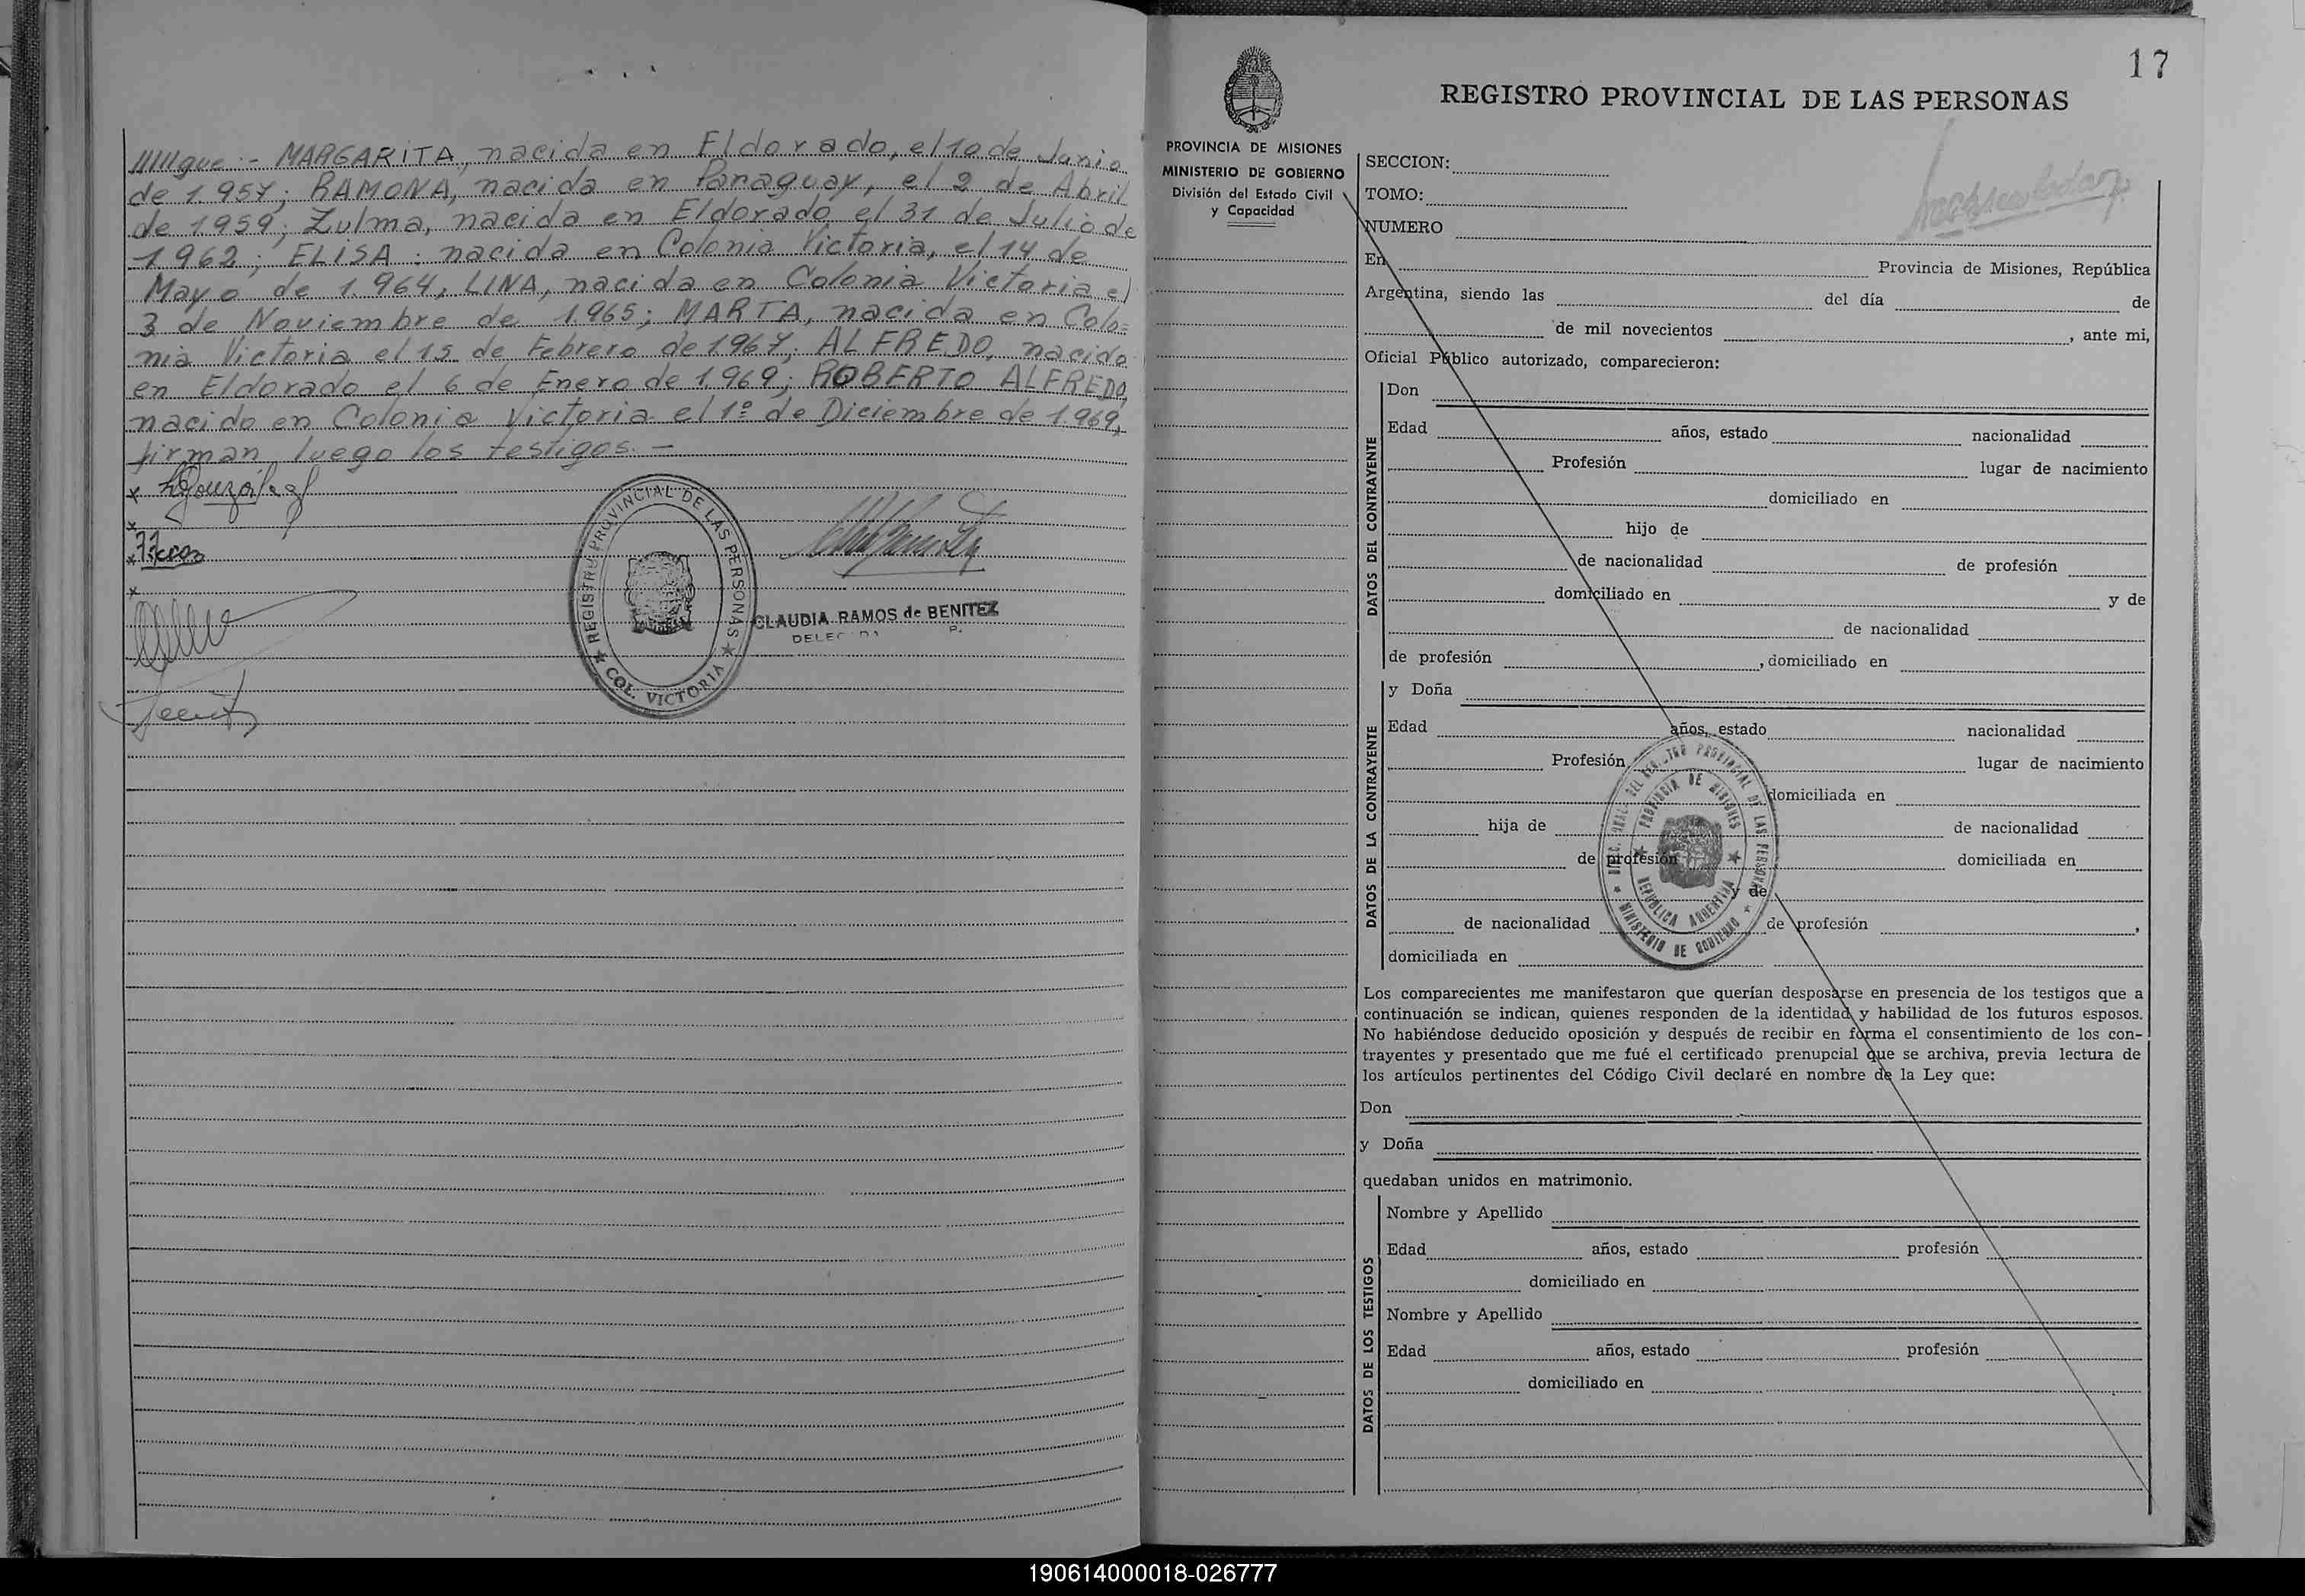 //////que :- MARGARITA, nacida en Eldorado, el 10 de Junio
de 1.957; RAMONA, nacida en Paraguay, el 2 de Abril
de 1959; Zulma, nacida en Eldorado el 31 de Julio de
1962; ELISA : nacida en Colonia Victoria, el 14 de
Mayo de 1.964; LINA, nacida en Colonia Victoria el
3 de Noviembre de 1.965; MARTA, nacida en Colo=
nia Victoria el 15 de Febrero de 1967; ALFREDO, nacido
en Eldorado el 6 de Enero de 1.969; ROBERTO ALFREDO,
nacido en Colonia Victoria el 1º de Diciembre de 1.969,
firman luego los testigos. —
REGISTRO PROVINCIAL DE LAS PERSONAS
COL. VICTORIA
CLAUDIA RAMOS de BENITEZ
17
REGISTRO PROVINCIAL DE LAS PERSONAS
PROVINCIA DE MISIONES
MINISTERIO DE GOBIERNO
División del Estado Civil
y Capacidad
SECCION:
TOMO:
NUMERO
En Provincia de Misiones, República
Argentina, siendo las del día de
de mil novecientos , ante mi,
Oficial Público autorizado, comparecieron:
DATOS DEL CONTRAYENTE
Don
Edad años, estado nacionalidad
Profesión lugar de nacimiento
domiciliado en
hijo de
de nacionalidad de profesión
domiciliado en y de
de nacionalidad
de profesión , domiciliado en
DATOS DE LA CONTRAYENTE
y Doña
Edad años, estado nacionalidad
Profesión lugar de nacimiento
domiciliada en
hija de de nacionalidad
de profesión domiciliada en
y de
de nacionalidad de profesión ,
domiciliada en
REGISTRO PROVINCIAL DE LAS PERSONAS
MINISTERIO DE GOBIERNO
PROVINCIA DE MISIONES
REPUBLICA ARGENTINA
Los comparecientes me manifestaron que querían desposarse en presencia de los testigos que a
continuación se indican, quienes responden de la identidad y habilidad de los futuros esposos.
No habiéndose deducido oposición y después de recibir en forma el consentimiento de los con-
trayentes y presentado que me fué el certificado prenupcial que se archiva, previa lectura de
los artículos pertinentes del Código Civil declaré en nombre de la Ley que:
Don
y Doña
quedaban unidos en matrimonio.
DATOS DE LOS TESTIGOS
Nombre y Apellido
Edad años, estado profesión
domiciliado en
Nombre y Apellido
Edad años, estado profesión
domiciliado en
190614000018-026777